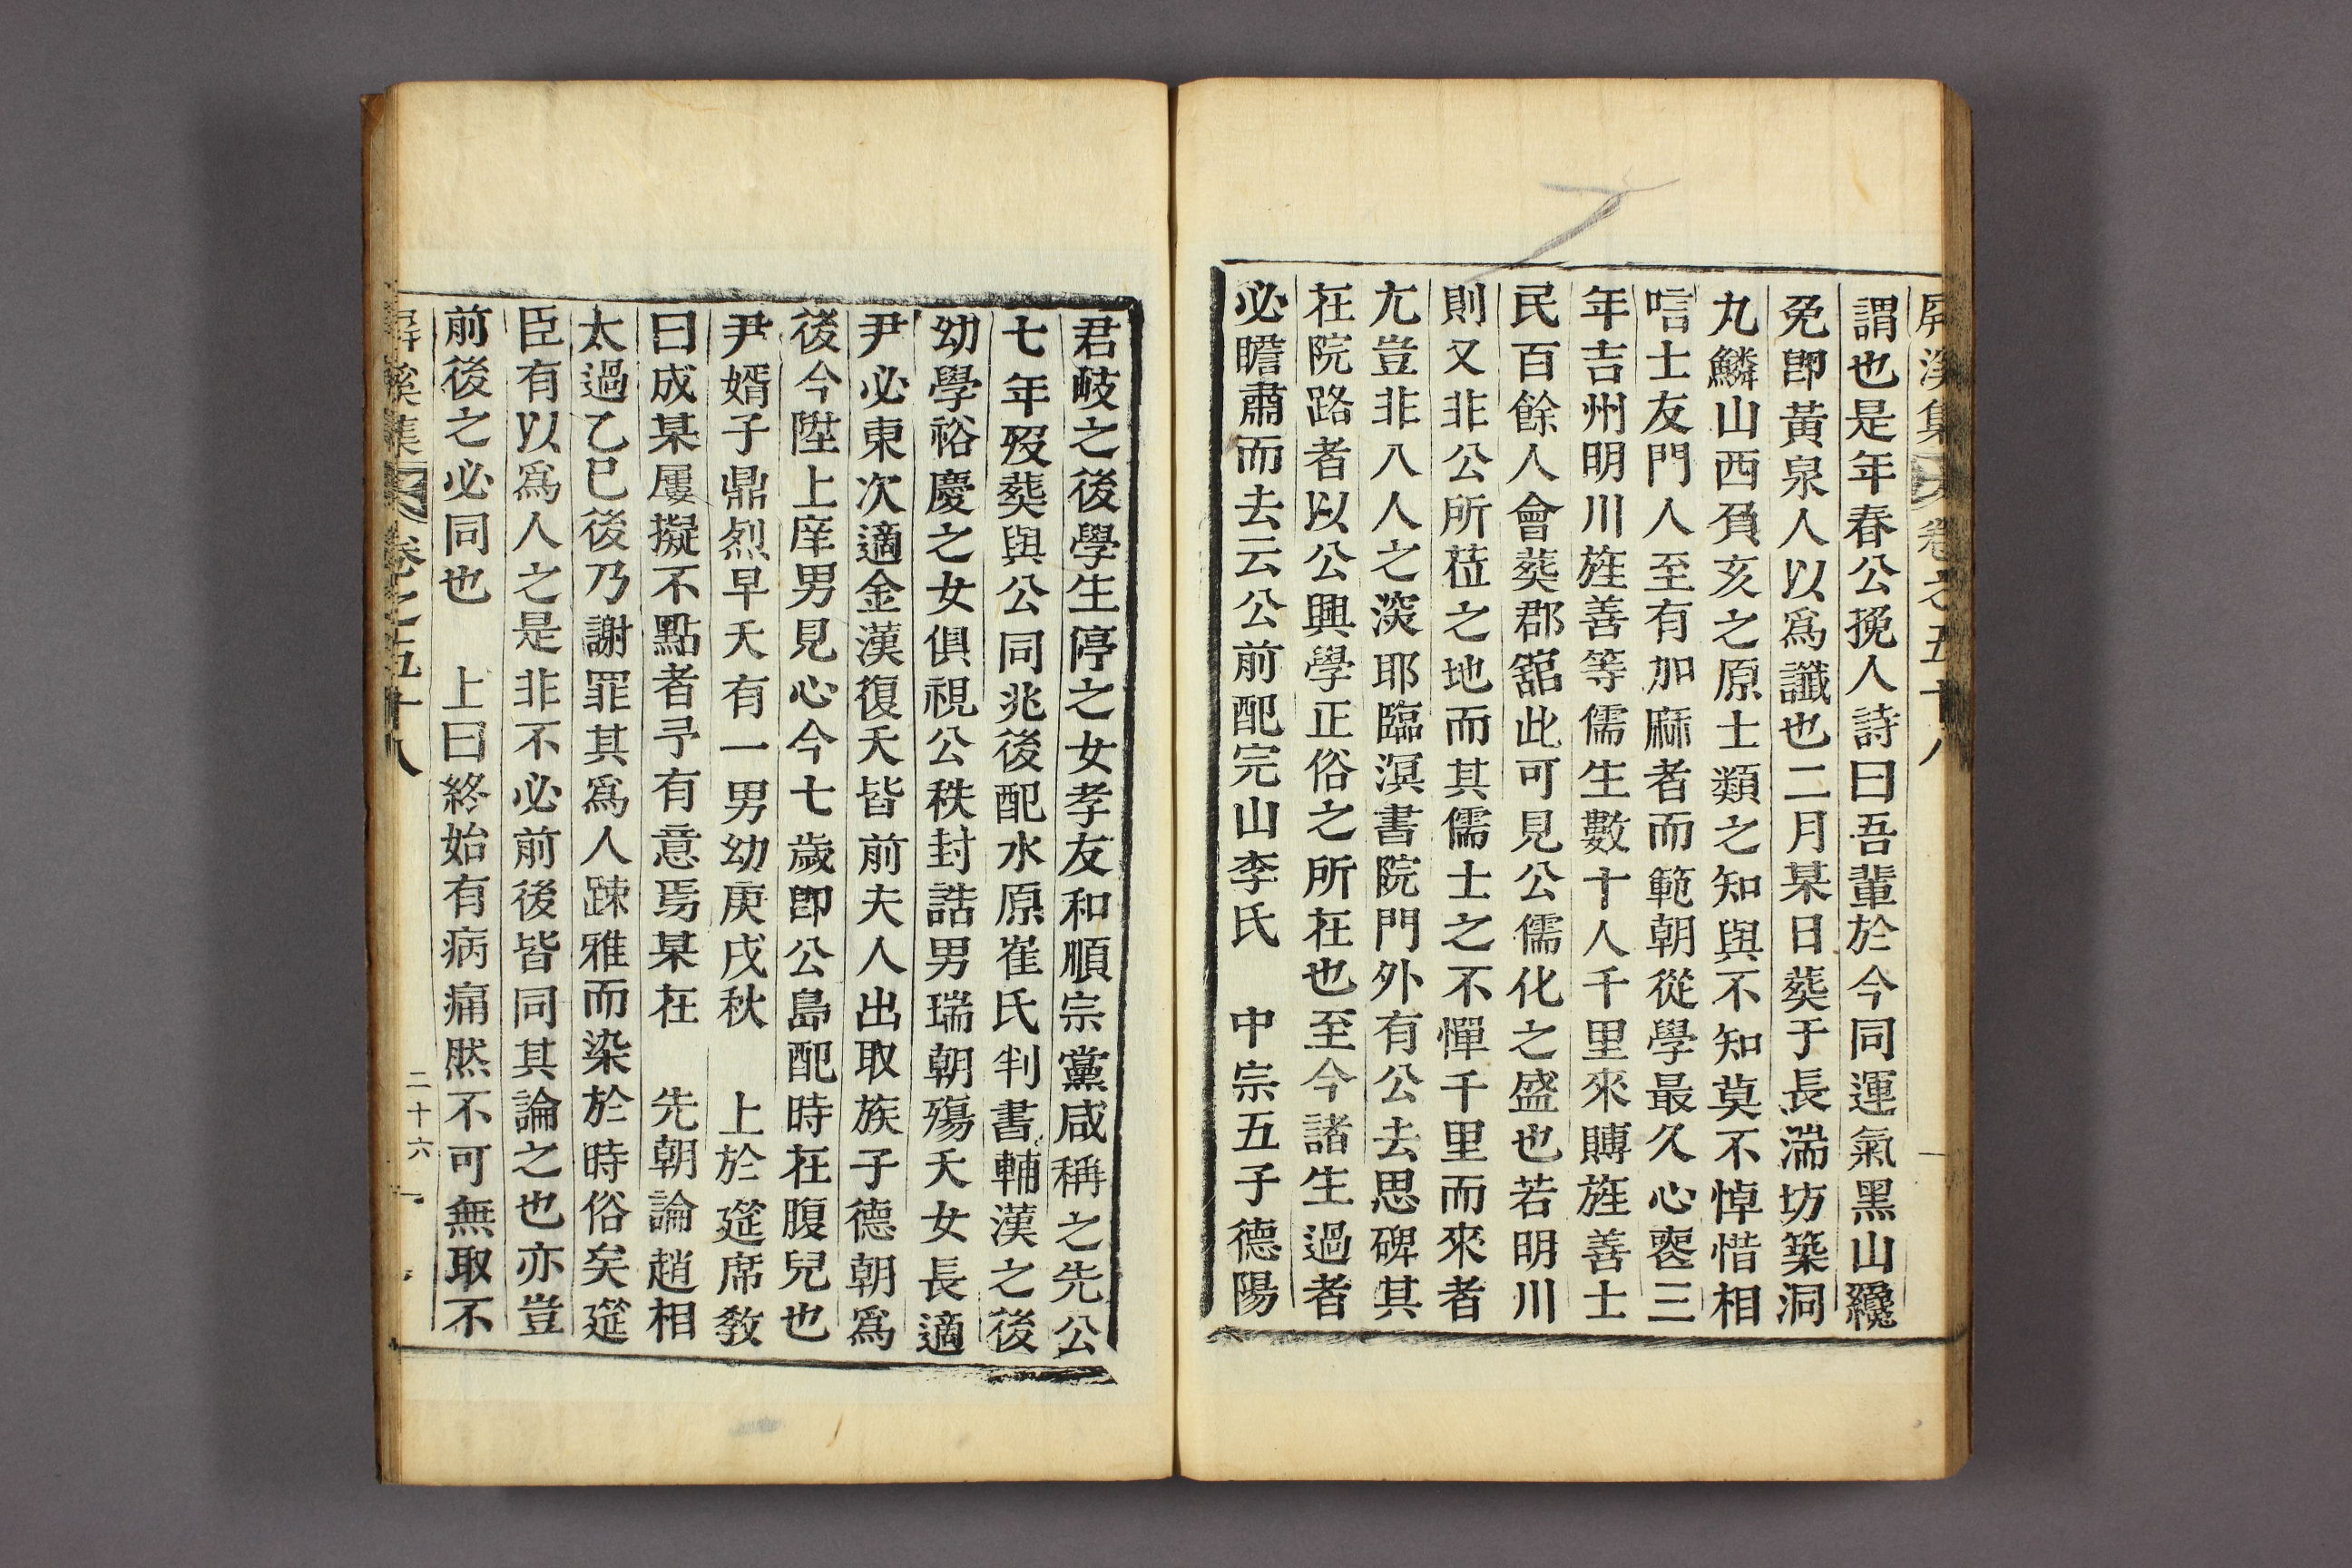 屛溪集 卷之五十八
謂也是年春公挽人詩曰吾輩於今同運氣黑山纔
免卽黃泉人以爲讖也二月某日葬于長湍坊築洞
丸鱗山西負亥之原士類之知與不知莫不悼惜相
唁士友門人至有加麻者而範朝從學最久心喪三
年吉州明川旌善等儒生數十人千里來賻旌善士
民百餘人會葬郡舘此可見公儒化之盛也若明川
則又非公所莅之地而其儒士之不憚千里而來者
尤豈非入人之深耶臨溟書院門外有公去思碑其
在院路者以公興學正俗之所在也至今諸生過者
必瞻肅而去云公前配完山李氏 中宗五子德陽
君岐之後學生停之女孝友和順宗黨咸稱之先公
七年歿葬與公同兆後配水原崔氏判書輔漢之後
幼學裕慶之女俱視公秩封誥男瑞朝殤夭女長適
尹必東次適金漢復夭皆前夫人出取族子德朝爲
後今陞上庠男見心今七歲卽公島配時在腹兒也
尹婿子鼎烈早夭有一男幼庚戌秋 上於筵席敎
曰成某屢擬不點者予有意焉某在 先朝論趙相
太過乙巳後乃謝罪其爲人踈雅而染於時俗矣筵
臣有以爲人之是非不必前後皆同其論之也亦豈
前後之必同也 上曰終始有病痛然不可無取不
屛溪集 卷之五十八 二十六